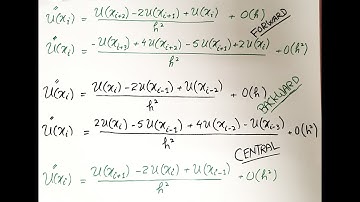 u''(xᵢ) = (u(xᵢ₊₂) - 2u(xᵢ₊₁) + u(xᵢ)) / h² + O(h)
FORWARD
u''(xᵢ) = (-u(xᵢ₊₃) + 4u(xᵢ₊₂) - 5u(xᵢ₊₁) + 2u(xᵢ)) / h² + O(h²)
u''(xᵢ) = (u(xᵢ) - 2u(xᵢ₋₁) + u(xᵢ₋₂)) / h² + O(h)
BACKWARD
u''(xᵢ) = (2u(xᵢ) - 5u(xᵢ₋₁) + 4u(xᵢ₋₂) - u(xᵢ₋₃)) / h² + O(h²)
CENTRAL
u''(xᵢ) = (u(xᵢ₊₁) - 2u(xᵢ) + u(xᵢ₋₁)) / h² + O(h²)